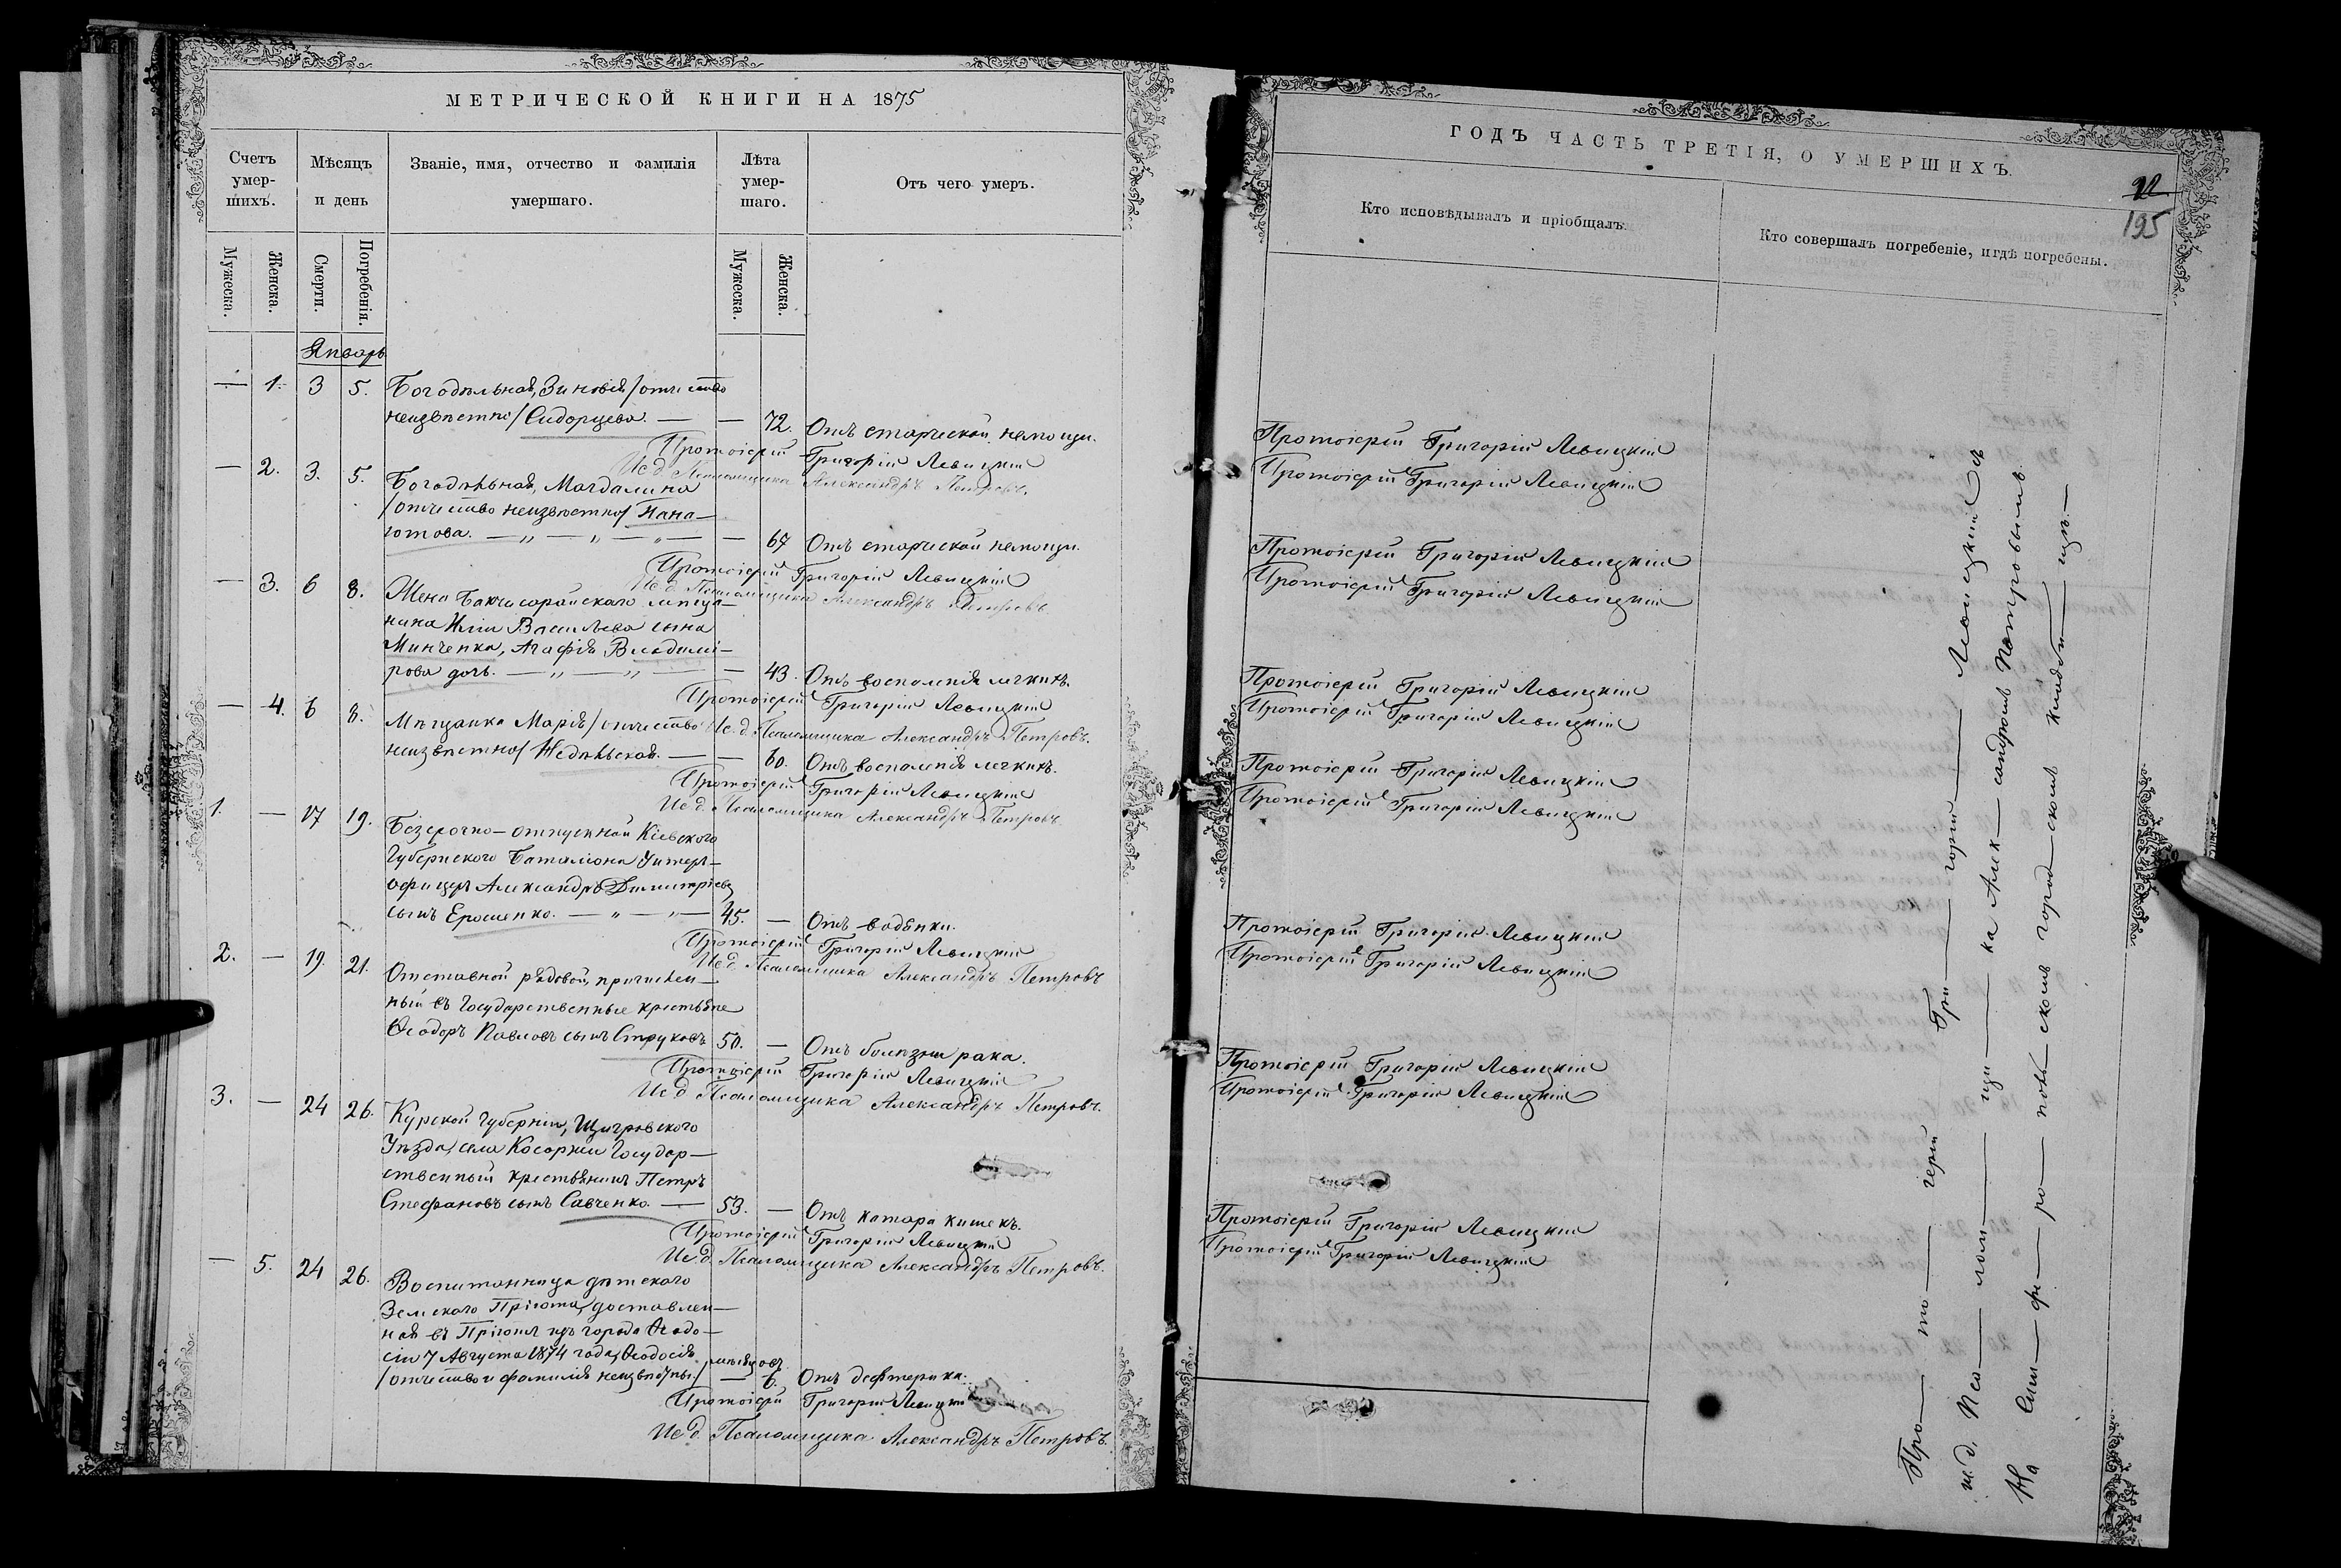 МЕТРИЧЕСКОЙ КНИГИ НА 1875
Счетъ умер-шихъ.
Мѣсяцъ и день
Званіе, имя, отчество и фамилія умершаго.
Лѣта умер-шаго.
Отъ чего умеръ.
Мужеска.
Женска.
Смерти.
Погребенія.
Мужеска.
Женска.
Январь
— 1. 3 5. Богодѣльная, Зиновія /отчество
неизвѣстно/ Сидорцева. — — 72. Отъ старческой немощи.
Протоіерей Григорій Левицкій
И. д. Псаломщика Александръ Петровъ.
— 2. 3. 5. Богодѣльная, Магдалина
/отчество неизвѣстно/ Пана—
іотова. — „ — „ — „ — — 67 Отъ старческой немощи.
Протоіерей Григорій Левицкій
И. д. Псаломщика Александръ Петровъ.
— 3. 6 8. Жена Бахчисарайскаго мѣща—
нина Иліи Васильева сына
Минченка, Агафія Владимі—
рова дочь. — „ — „ — — 43. Отъ воспаленія легкихъ.
Протоіерей Григорій Левицкій
И. д. Псаломщика Александръ Петровъ.
— 4. 6 8. Мѣщанка Марія /отчество
неизвѣстно/ Недѣльская. — — 60. Отъ воспаленія легкихъ.
Протоіерей Григорій Левицкій
И. д. Псаломщика Александръ Петровъ.
1. — 17 19. Безсрочно—отпускной Кіевскаго
Губернскаго Баталіона Унтеръ—
офицеръ Александръ Димитріевъ
сынъ Ерошенко. — „ — „ — 45. — Отъ водянки.
Протоіерей Григорій Левицкій
И. д. Псаломщика Александръ Петровъ
2. — 19. 21. Отставной рядовой, причислен—
ный въ Государственные крестьяне
Ѳеодоръ Павловъ сынъ Струковъ 50. — Отъ болѣзни рака.
Протоіерей Григорій Левицкій
И. д. Псаломщика Александръ Петровъ.
3. — 24 26. Курской Губерніи, Щигровскаго
Уѣзда, села Косоржи Государ—
ственный крестьянинъ Петръ
Стефановъ сынъ Савченко. — 53. — Отъ катара кишекъ.
Протоіерей Григорій Левицкій
И. д. Псаломщика Александръ Петровъ.
— 5. 24 26. Воспитанница дѣтскаго
Земскаго Пріюта, доставлен—
ная въ Пріютъ изъ города Ѳеодо—
сіи 7 Августа 1874 года, Ѳеодосія
/отчество и фамилія неизвѣстны/ — мѣсяцовъ 6. Отъ дифтерика.
Протоіерей Григорій Левицкій
И. д. Псаломщика Александръ Петровъ.
ГОДЪ ЧАСТЬ ТРЕТІЯ, О УМЕРШИХЪ.
22
195
Кто исповѣдывалъ и пріобщалъ.
Кто совершалъ погребеніе, и гдѣ погребены.
Протоіерей Григорій Левицкій
Протоіерей Григорій Левицкій
Протоіерей Григорій Левицкій
Протоіерей Григорій Левицкій
Протоіерей Григорій Левицкій
Протоіерей Григорій Левицкій
Протоіерей Григорій Левицкій
Протоіерей Григорій Левицкій
Протоіерей Григорій Левицкій
Протоіерей Григорій Левицкій
Протоіерей Григорій Левицкій
Протоіерей Григорій Левицкій
Протоіерей Григорій Левицкій
Протоіерей Григорій Левицкій
Про— то— іерей Гри— горій — Левицкій съ
и. д. Пса— лом— щи— ка Алек— сандромъ Петровымъ
На Сим— фе— ро— поль— скомъ город— скомъ кладби— щѣ.—